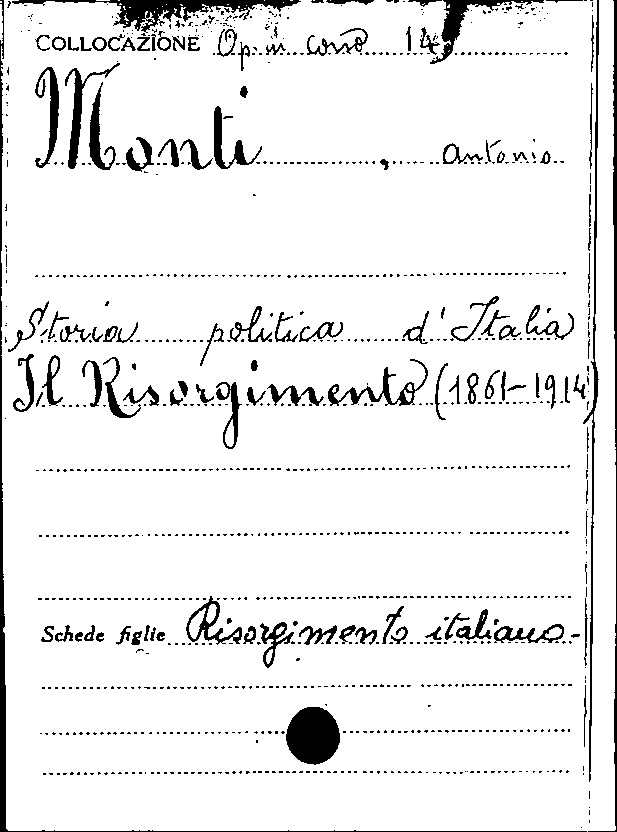 COLLOCAZIONE Op. in corso 14
Monti, Antonio
Storia politica d'Italia
Il Risorgimento (1861-1914)
Schede figlie Risorgimento italiano-